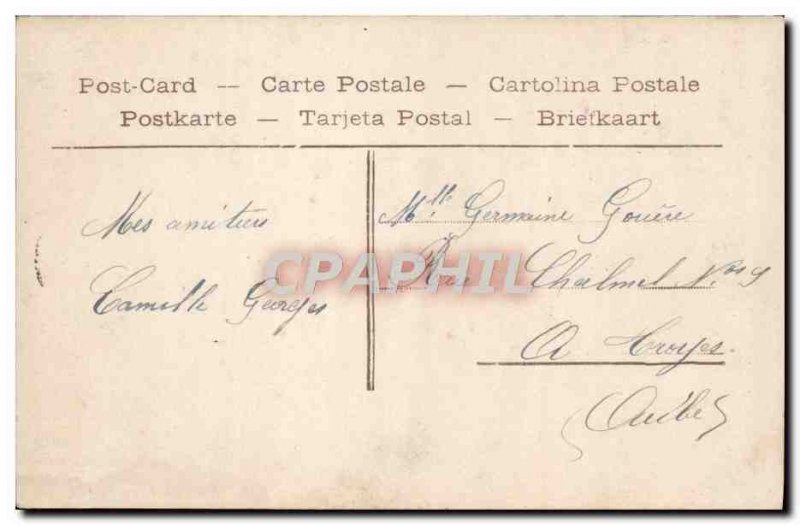 Post-Card — Carte Postale — Cartolina Postale
Postkarte — Tarjeta Postal — Briefkaart
Mes amitiés
Camille Georges
Mlle. Germaine Gouère
Rue Chalmel Nos 9
A Troyes.
(Aube)
CPAPHIL